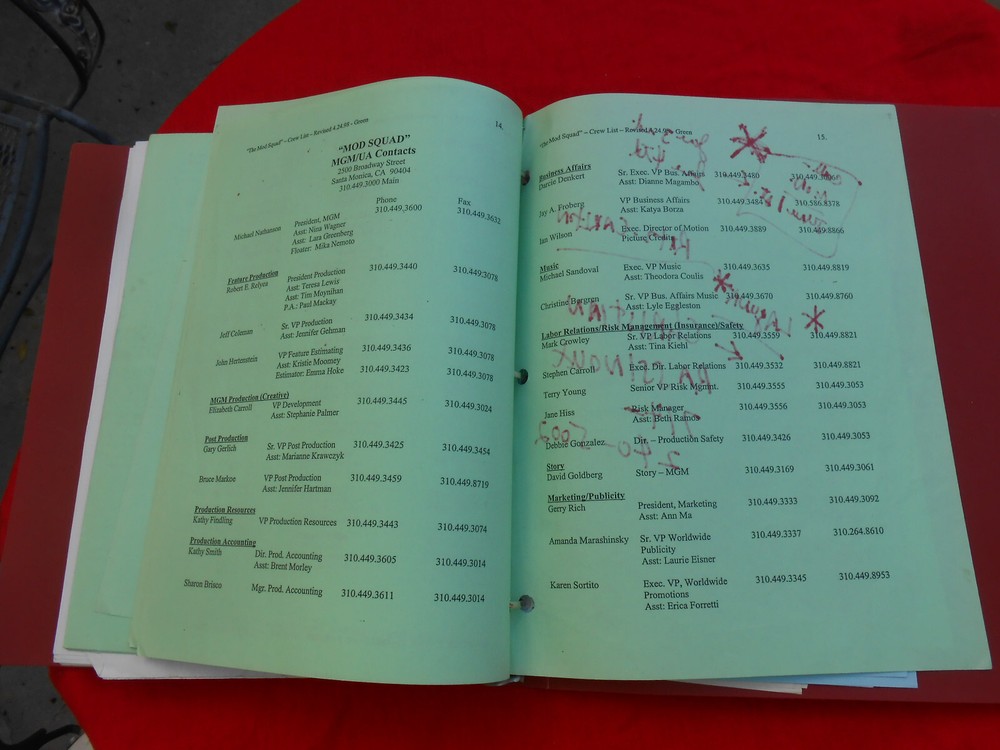 "The Mod Squad" – Crew List – Revised 4.24.98 - Green 14.
"MOD SQUAD"
MGM/UA Contacts
2500 Broadway Street
Santa Monica, CA 90404
310.449.3000 Main
Phone Fax
Michael Nathanson President, MGM 310.449.3600 310.449.3632
Asst: Nina Wagner
Asst: Lara Greenberg
Floater: Mika Nemoto
Feature Production
Robert E. Relyea President Production 310.449.3440 310.449.3078
Asst: Teresa Lewis
Asst: Tim Moynihan
P.A.: Paul Mackay
Jeff Coleman Sr. VP Production 310.449.3434 310.449.3078
Asst: Jennifer Gehman
John Hertenstein VP Feature Estimating 310.449.3436 310.449.3078
Asst: Kristie Moomey
Estimator: Emma Hoke 310.449.3423 310.449.3078
MGM Production (Creative)
Elizabeth Carroll VP Development 310.449.3445 310.449.3024
Asst: Stephanie Palmer
Post Production
Gary Gerlich Sr. VP Post Production 310.449.3425 310.449.3454
Asst: Marianne Krawczyk
Bruce Markoe VP Post Production 310.449.3459 310.449.8719
Asst: Jennifer Hartman
Production Resources
Kathy Findling VP Production Resources 310.449.3443 310.449.3074
Production Accounting
Kathy Smith Dir. Prod. Accounting 310.449.3605 310.449.3014
Asst: Brent Morley
Sharon Brisco Mgr. Prod. Accounting 310.449.3611 310.449.3014
"The Mod Squad" – Crew List – Revised 4.24.98 - Green 15.
Business Affairs
Darcie Denkert Sr. Exec. VP Bus. Affairs 310.449.3480
Asst: Dianne Magambo
Jay A. Froberg VP Business Affairs 310.449.3484 310.586.8378
Asst: Katya Borza
Ian Wilson Exec. Director of Motion 310.449.3889 310.449.8866
Picture Credits
Music
Michael Sandoval Exec. VP Music 310.449.3635 310.449.8819
Asst: Theodora Coulis
Christine Bergren Sr. VP Bus. Affairs Music 310.449.3670 310.449.8760
Asst: Lyle Eggleston
Labor Relations/Risk Management (Insurance)/Safety
Mark Crowley Sr. VP Labor Relations 310.449.3559 310.449.8821
Asst: Tina Kiehl
Stephen Carroll Exec. Dir. Labor Relations 310.449.3532 310.449.8821
Terry Young Senior VP Risk Mgmnt. 310.449.3555 310.449.3053
Jane Hiss Risk Manager 310.449.3556 310.449.3053
Asst: Beth Ramos
Debbie Gonzalez Dir. – Production Safety 310.449.3426 310.449.3053
Story
David Goldberg Story – MGM 310.449.3169 310.449.3061
Marketing/Publicity
Gerry Rich President, Marketing 310.449.3333 310.449.3092
Asst: Ann Ma
Amanda Marashinsky Sr. VP Worldwide 310.449.3337 310.264.8610
Publicity
Asst: Laurie Eisner
Karen Sortito Exec. VP, Worldwide 310.449.3345 310.449.8953
Promotions
Asst: Erica Forretti